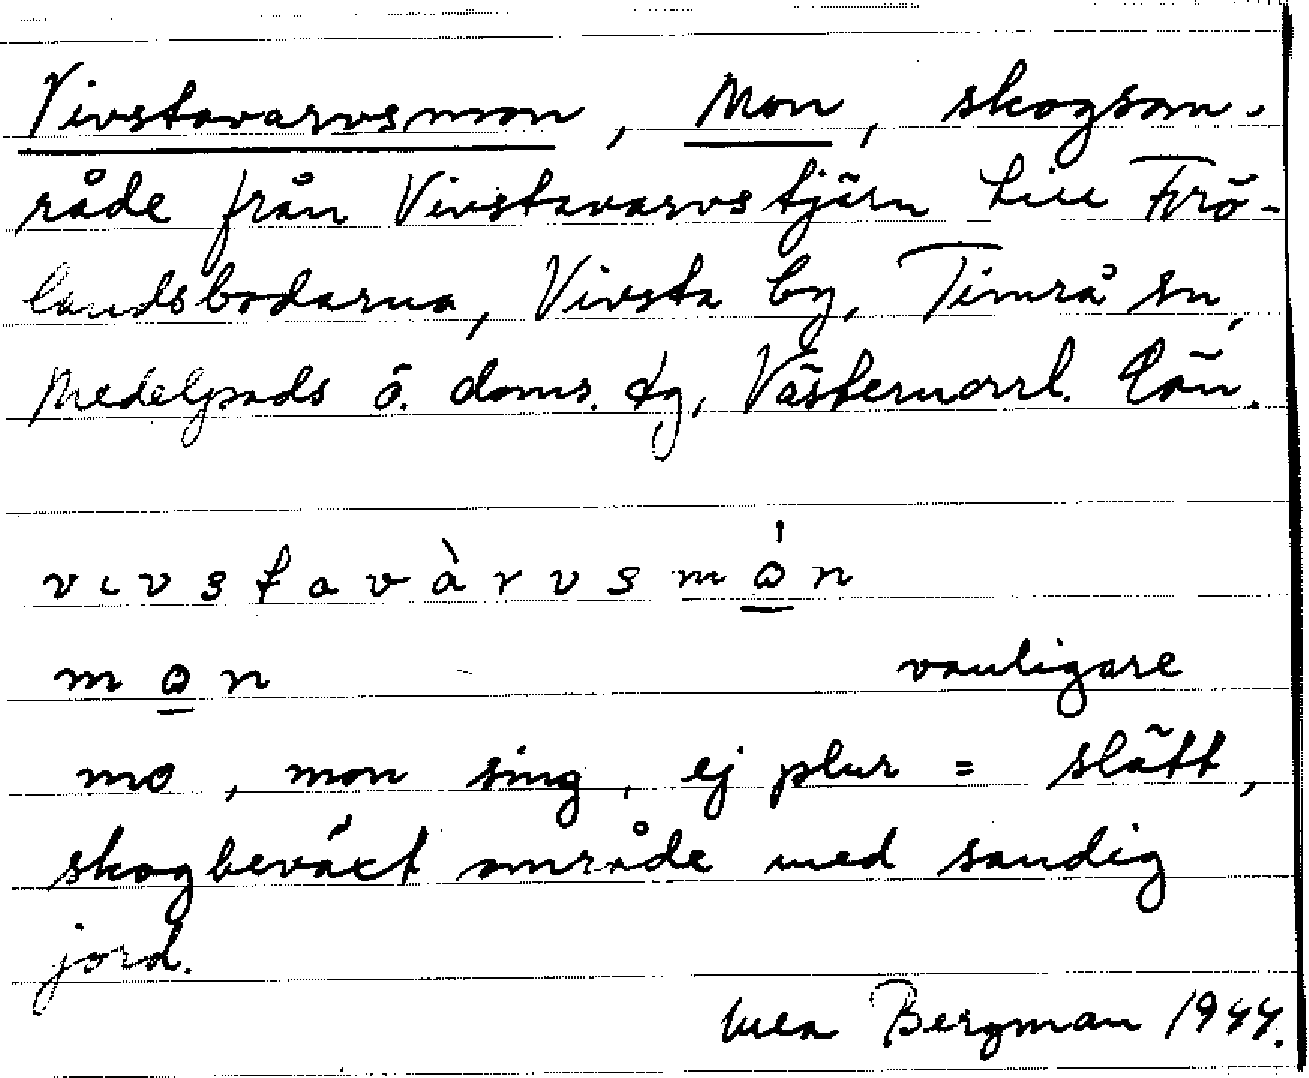 Vivstavarvsmon, Mon, skogsom-
råde från Vivstavarvstjärn till Frö-
landsbodarna, Vivsta by, Timrå sn,
Medelpads ö. doms. dg, Västernorrl. län.
vıvstavàrvsmo̲̍n
mo̲n vanligare
mo, mon sing, ej plur = slätt,
skogbeväxt område med sandig
jord.
Bergman 1944.